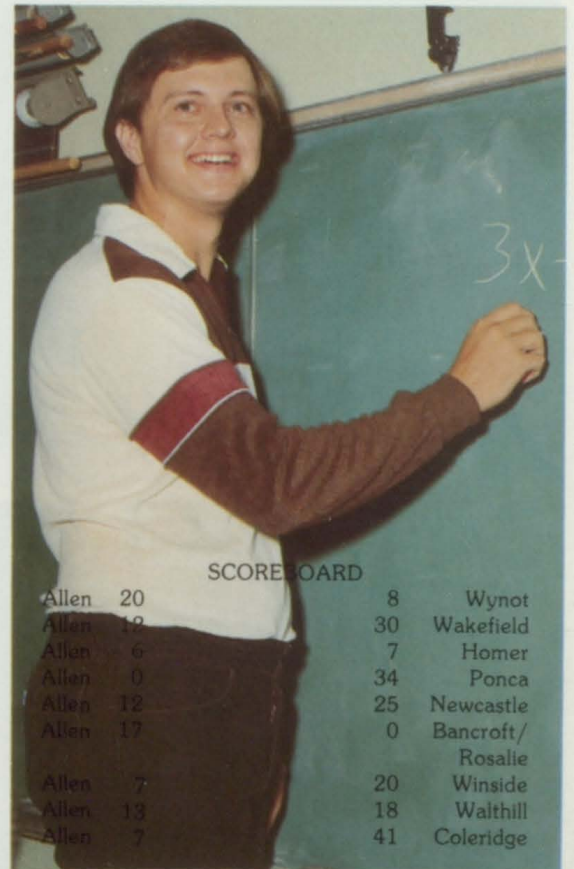 3x-
SCOREBOARD
Allen 20 8 Wynot
Allen 12 30 Wakefield
Allen 6 7 Homer
Allen 0 34 Ponca
Allen 12 25 Newcastle
Allen 17 0 Bancroft/
Rosalie
Allen 7 20 Winside
Allen 13 18 Walthill
Allen 7 41 Coleridge